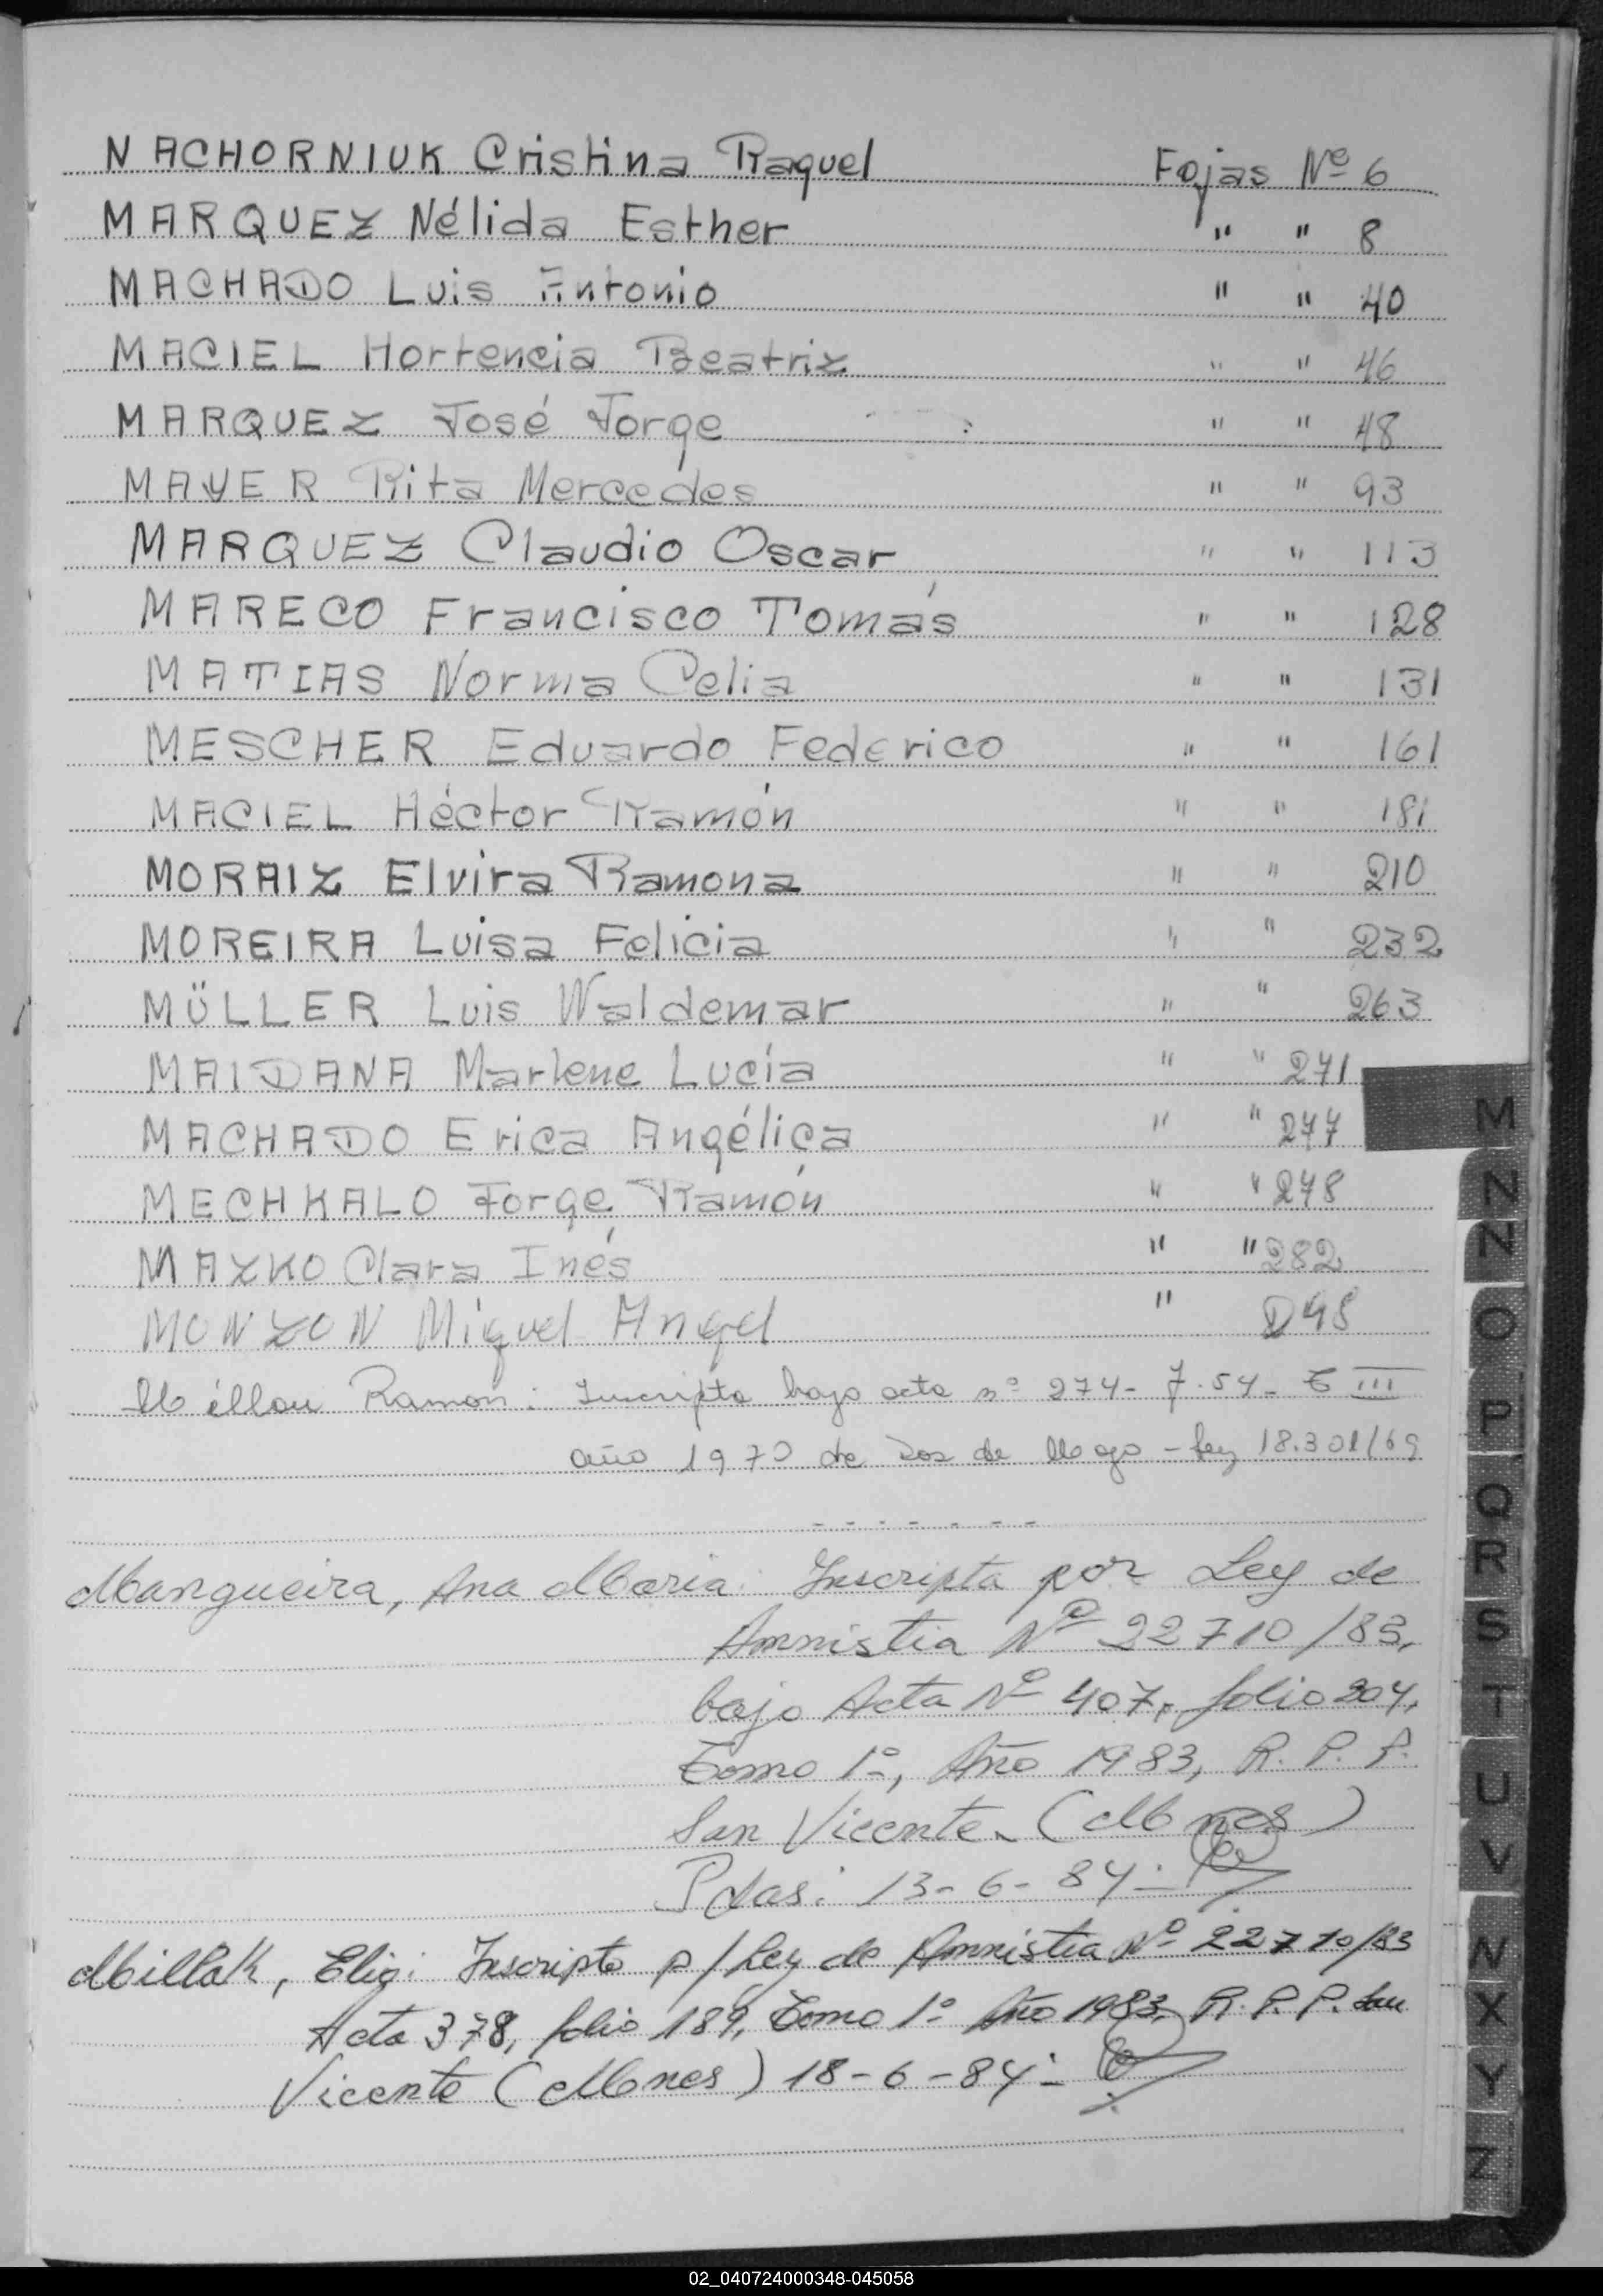 NACHORNIUK Cristina Raquel Fojas Nº 6
MARQUEZ Nélida Esther " " 8
MACHADO Luis Antonio " " 40
MACIEL Hortencia Beatriz " " 46
MARQUEZ José Jorge " " 48
MAYER Rita Mercedes " " 93
MARQUEZ Claudio Oscar " " 113
MARECO Francisco Tomás " " 128
MATIAS Norma Celia " " 131
MESCHER Eduardo Federico " " 161
MACIEL Héctor Ramón " " 181
MORAIZ Elvira Ramona " " 210
MOREIRA Luisa Felicia " " 232
MÜLLER Luis Waldemar " " 263
MAIDANA Marlene Lucía " " 271
MACHADO Erica Angélica " " 277
MECHKALO Jorge Ramón " " 278
MAZKO Clara Inés " " 282
MONZON Miguel Angel "
Ramon: Inscripto bajo acta nº 274- 7.54- T III
año 1970 de Dos de Mayo - ley 18.301/69
- - - - - - -
Mangueira, Ana Maria: Inscripta por Ley de
Amnistia Nº 22710/83,
bajo Acta Nº 407, folio 204,
Tomo 1º, Año 1983, R. P. P.
San Vicente. (Mnes)
Pdas: 13-6-84.-
Millak, Elio: Inscripto p/Ley de Amnistia Nº 22710/83
Acta 378, folio 189, Tomo 1º Año 1983, R. P. P. San
Vicente (Mnes) 18-6-84.-
M
N
Ñ
O
P
Q
R
S
T
U
V
W
X
Y
Z
02_040724000348-045058